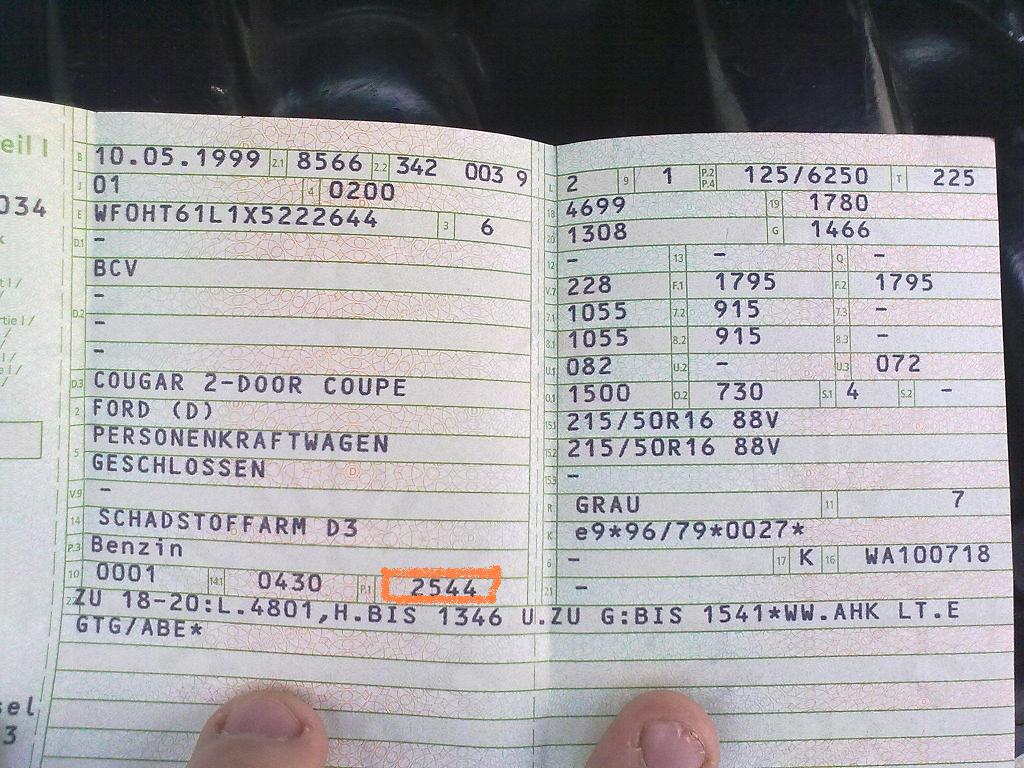 eil I
034
B 10.05.1999 2.1 8566 2.2 342 003 9
J 01 4 0200
E WF0HT61L1X5222644 3 6
D.1 -
BCV
-
D.2 -
-
D.3 COUGAR 2-DOOR COUPE
2 FORD (D)
5 PERSONENKRAFTWAGEN
GESCHLOSSEN
V.9 -
14 SCHADSTOFFARM D3
P.3 Benzin
10 0001 14.1 0430 P.1 2544
L 2 9 1 P.2 P.4 125/6250 T 225
18 4699 19 1780
20 1308 G 1466
12 - 13 - Q -
V.7 228 F.1 1795 F.2 1795
7.1 1055 7.2 915 7.3 -
8.1 1055 8.2 915 8.3 -
U.1 082 U.2 - U.3 072
O.1 1500 O.2 730 S.1 4 S.2 -
15.1 215/50R16 88V
15.2 215/50R16 88V
15.3 -
R GRAU 11 7
K e9*96/79*0027*
6 - 17 K 16 WA100718
21 -
22 ZU 18-20:L.4801,H.BIS 1346 U.ZU G:BIS 1541*WW.AHK LT.E
GTG/ABE*
sel
3